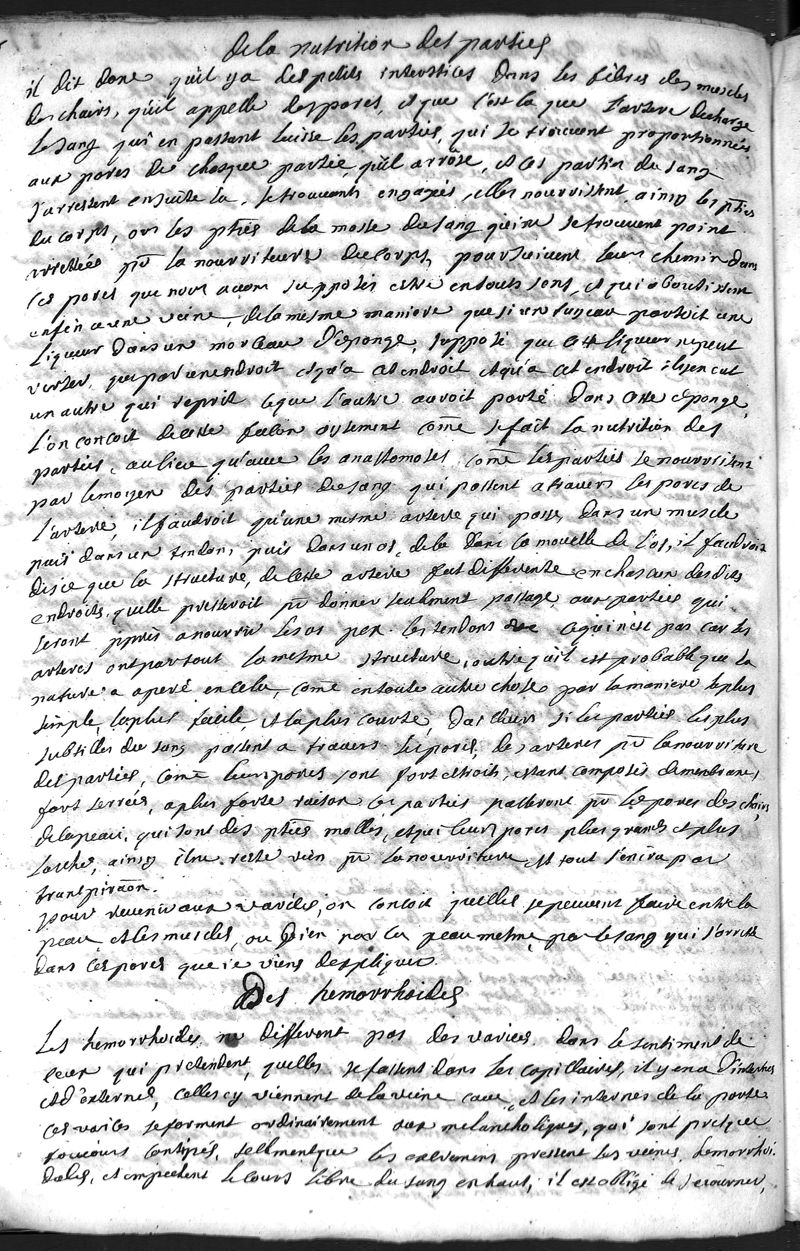 de la nutrition des parties
il dit donc qu'il y a des petits interstices dans les fibres des muscles
des chairs, qu'il appelle des pores, et que c'est la que l'artere decharge
le sang qui en passant laisse les parties, qui se trouvent proportionnées
aux pores de chasque partie qu'il arrose, et ces parties du sang
s'arrestent ensuite la, se trouvants engagés, elles nourrissent ainsy les pties
du corps, ou les pties de la masse du sang qui ne se trouvent point
arrestées pr la nourriture du corps poursuivent leur chemin dans
ces pores que nous avons supposés estre en touts sens, et qui aboutissent
enfin a une veine, de la mesme maniere que si un tuyau portoit une
liqueur dans un morceau d'eponge, supposé que cette liqueur ne peut
verser que par un endroit et qu'a cet endroit il y en eut
un autre qui reprit ce que l'autre auroit porté dans cette eponge,
l'on concoit de cette facon aysement come se fait la nutrition des
parties, au lieu qu'avec les anastomoses come les parties se nourrissent
par le moyen des parties du sang qui passent a travers les pores de
l'artere, il faudroit qu'une mesme artere qui passe dans un muscle
puis dans un tendon, puis dans un os, de la dans la mouelle de l'os, il faudroit
dis ie que la structure de cette artere fut differente en chascun des dits
endroits, quelle presteroit pr donner seulment passage aux parties qui
seront ppres a nourrir les os les tendons ce qui n'est pas car les
arteres ont partout la mesme structure, outre qu'il est probable que la
nature a operé en cela, come en toute autre chose par la maniere la plus
simple, la plus facile, et la plus courte, d'ailleurs si les parties les plus
subtilles du sang passent a travers les pores des arteres pr la nourriture
des parties, come leurs pores sont fort etroits, estant composés de membranes
fort serrées, a plus forte raison ces parties passeront pr les pores des chairs
de la peau, qui sont des pties molles, et qui leurs pores plus grands et plus
lasches, ainsy il ne reste rien pr la nourriture et tout s'en ira par
transpiraon.
pour revenir aux varices, on concoit quelles se peuvent faire entre la
peau et les muscles, ou bien par la peau mesme, par le sang qui s'arreste
dans ces pores que ie viens d'expliquer.
Des hemorrhoides
Les hemorrhoides ne different pas des varices dans le sentiment de
ceux qui pretendent, quelles se fassent dans les capillaires, il y en a d'internes
et d'externes, celles cy viennent de la veine cave, et les internes de la porte
ces varices se forment ordinairement aux melancholiques, qui sont presque
toujours constipés, tellmentque les excremens pressent les veines hemorrhoi
dales, et empechent le cours libre du sang en haut, il est obligé de sejourner,